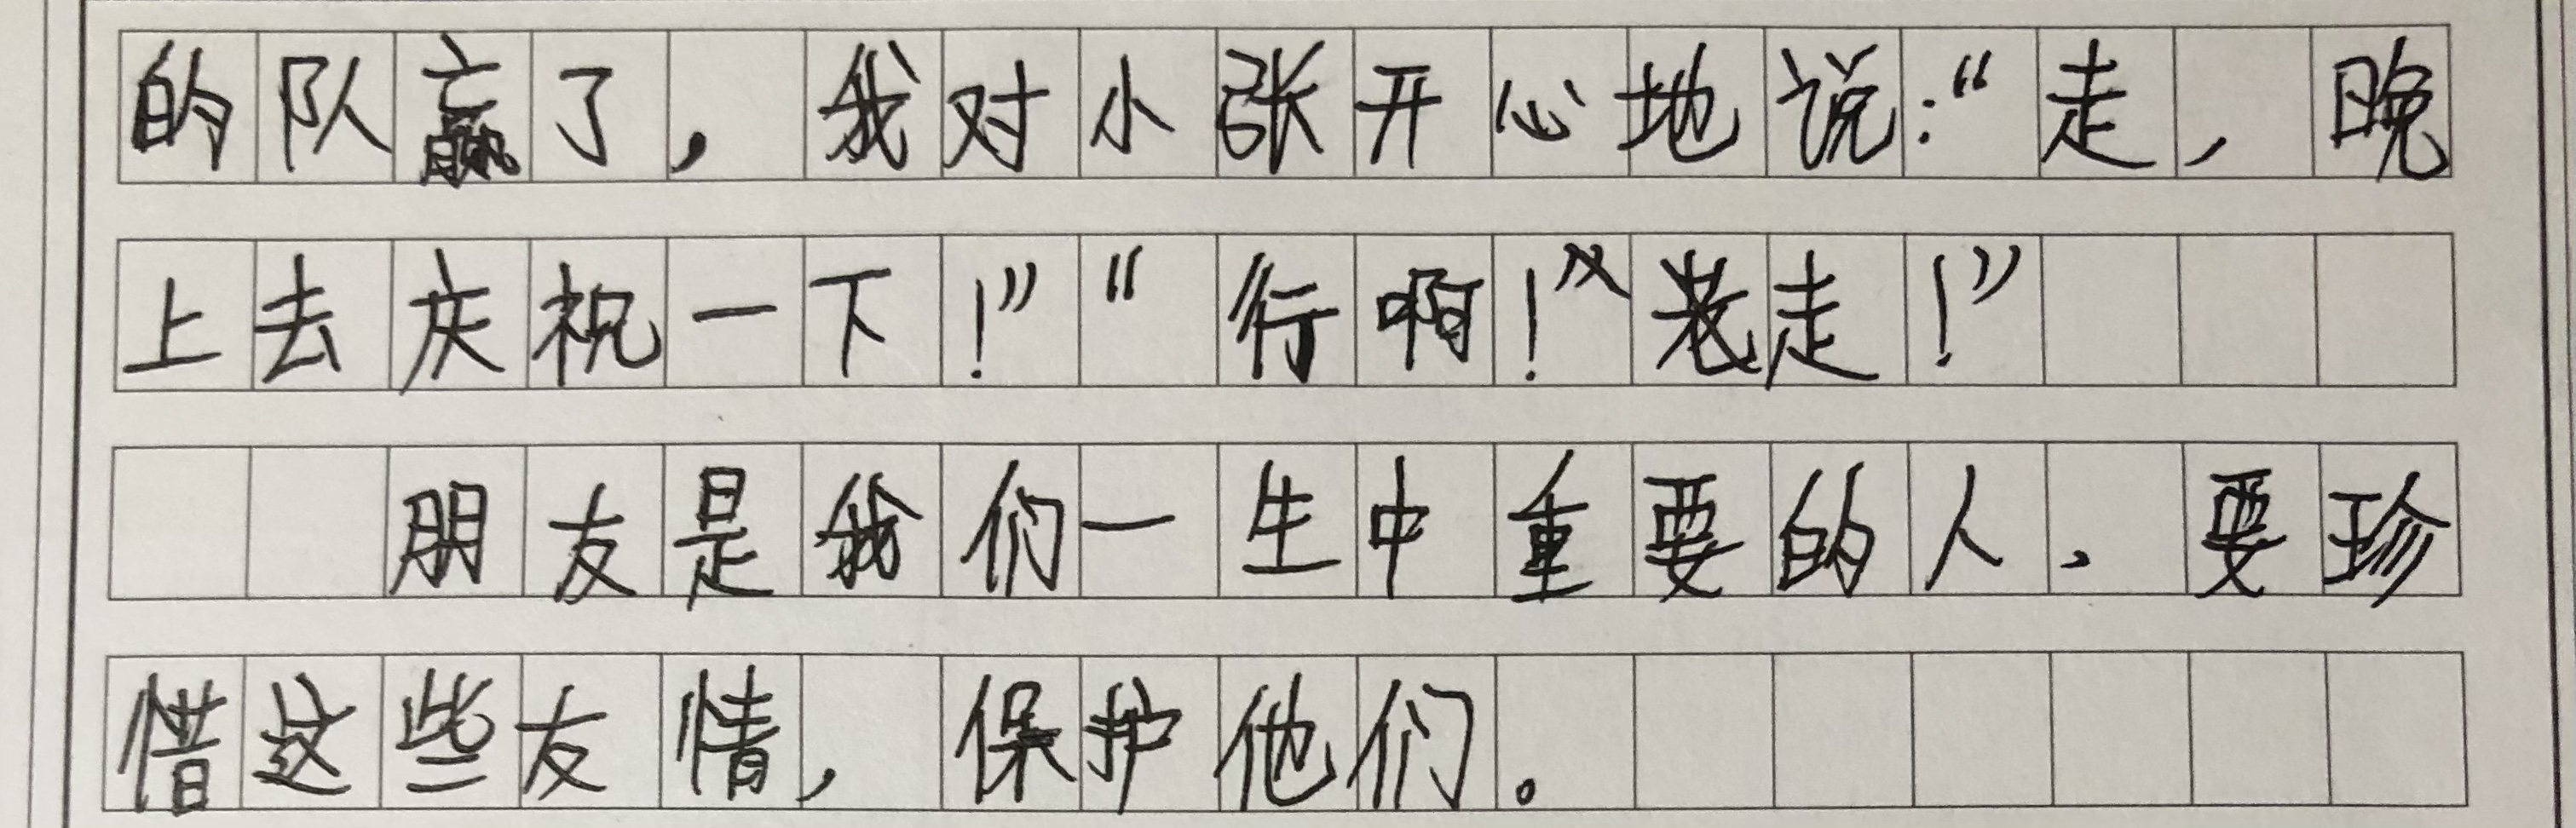 的队赢了，我对小张开心地说：“走，晚
上去庆祝一下！”“行啊！走！”
朋友是我们一生中重要的人、要珍
惜这些友情，保护他们。